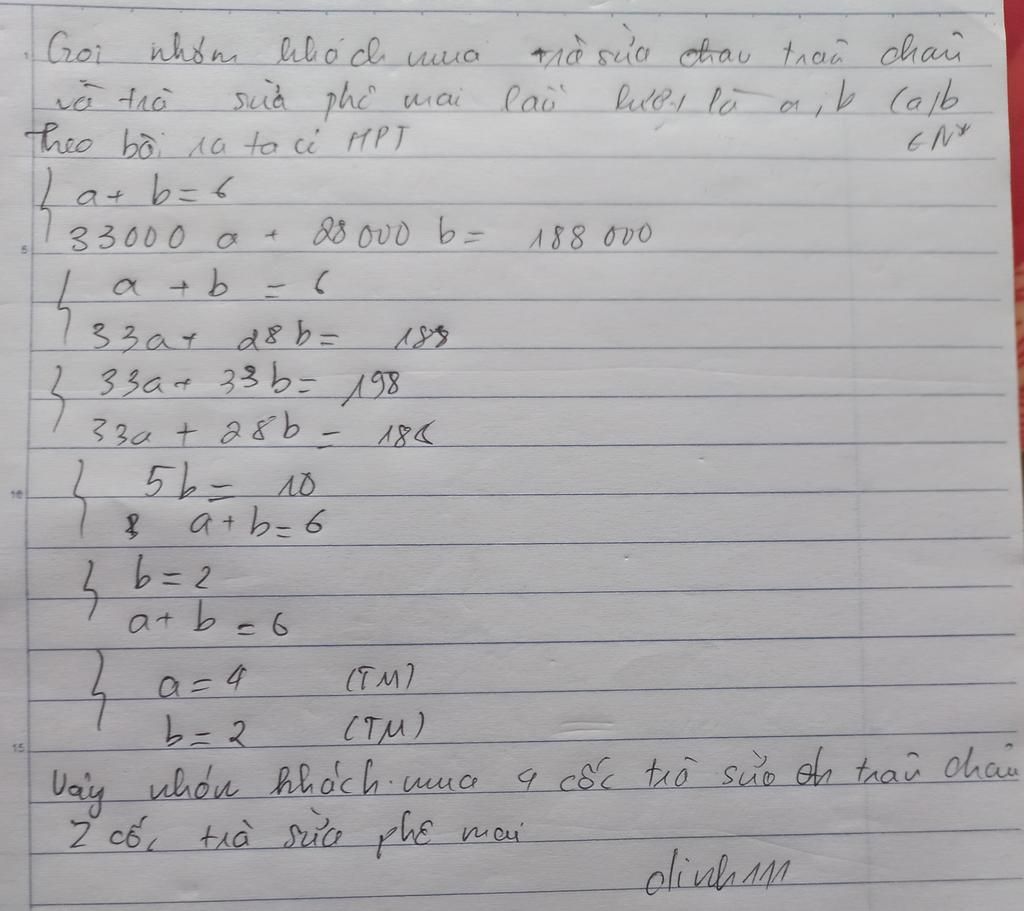 Gọi nhóm khách mua trà sữa trân châu
và trà sữa phô mai lần lượt là a, b (a,b
∈ N*
Theo bài ra ta có HPT
a + b = 6
33000 a + 28000 b = 188 000
a + b = 6
33a + 28b = 188
33a + 33b = 198
33a + 28b = 188
5b = 10
a + b = 6
b = 2
a + b = 6
a = 4 (TM)
b = 2 (TM)
Vậy nhóm khách mua 4 cốc trà sữa trân châu
2 cốc trà sữa phô mai
dinh111
5
10
15